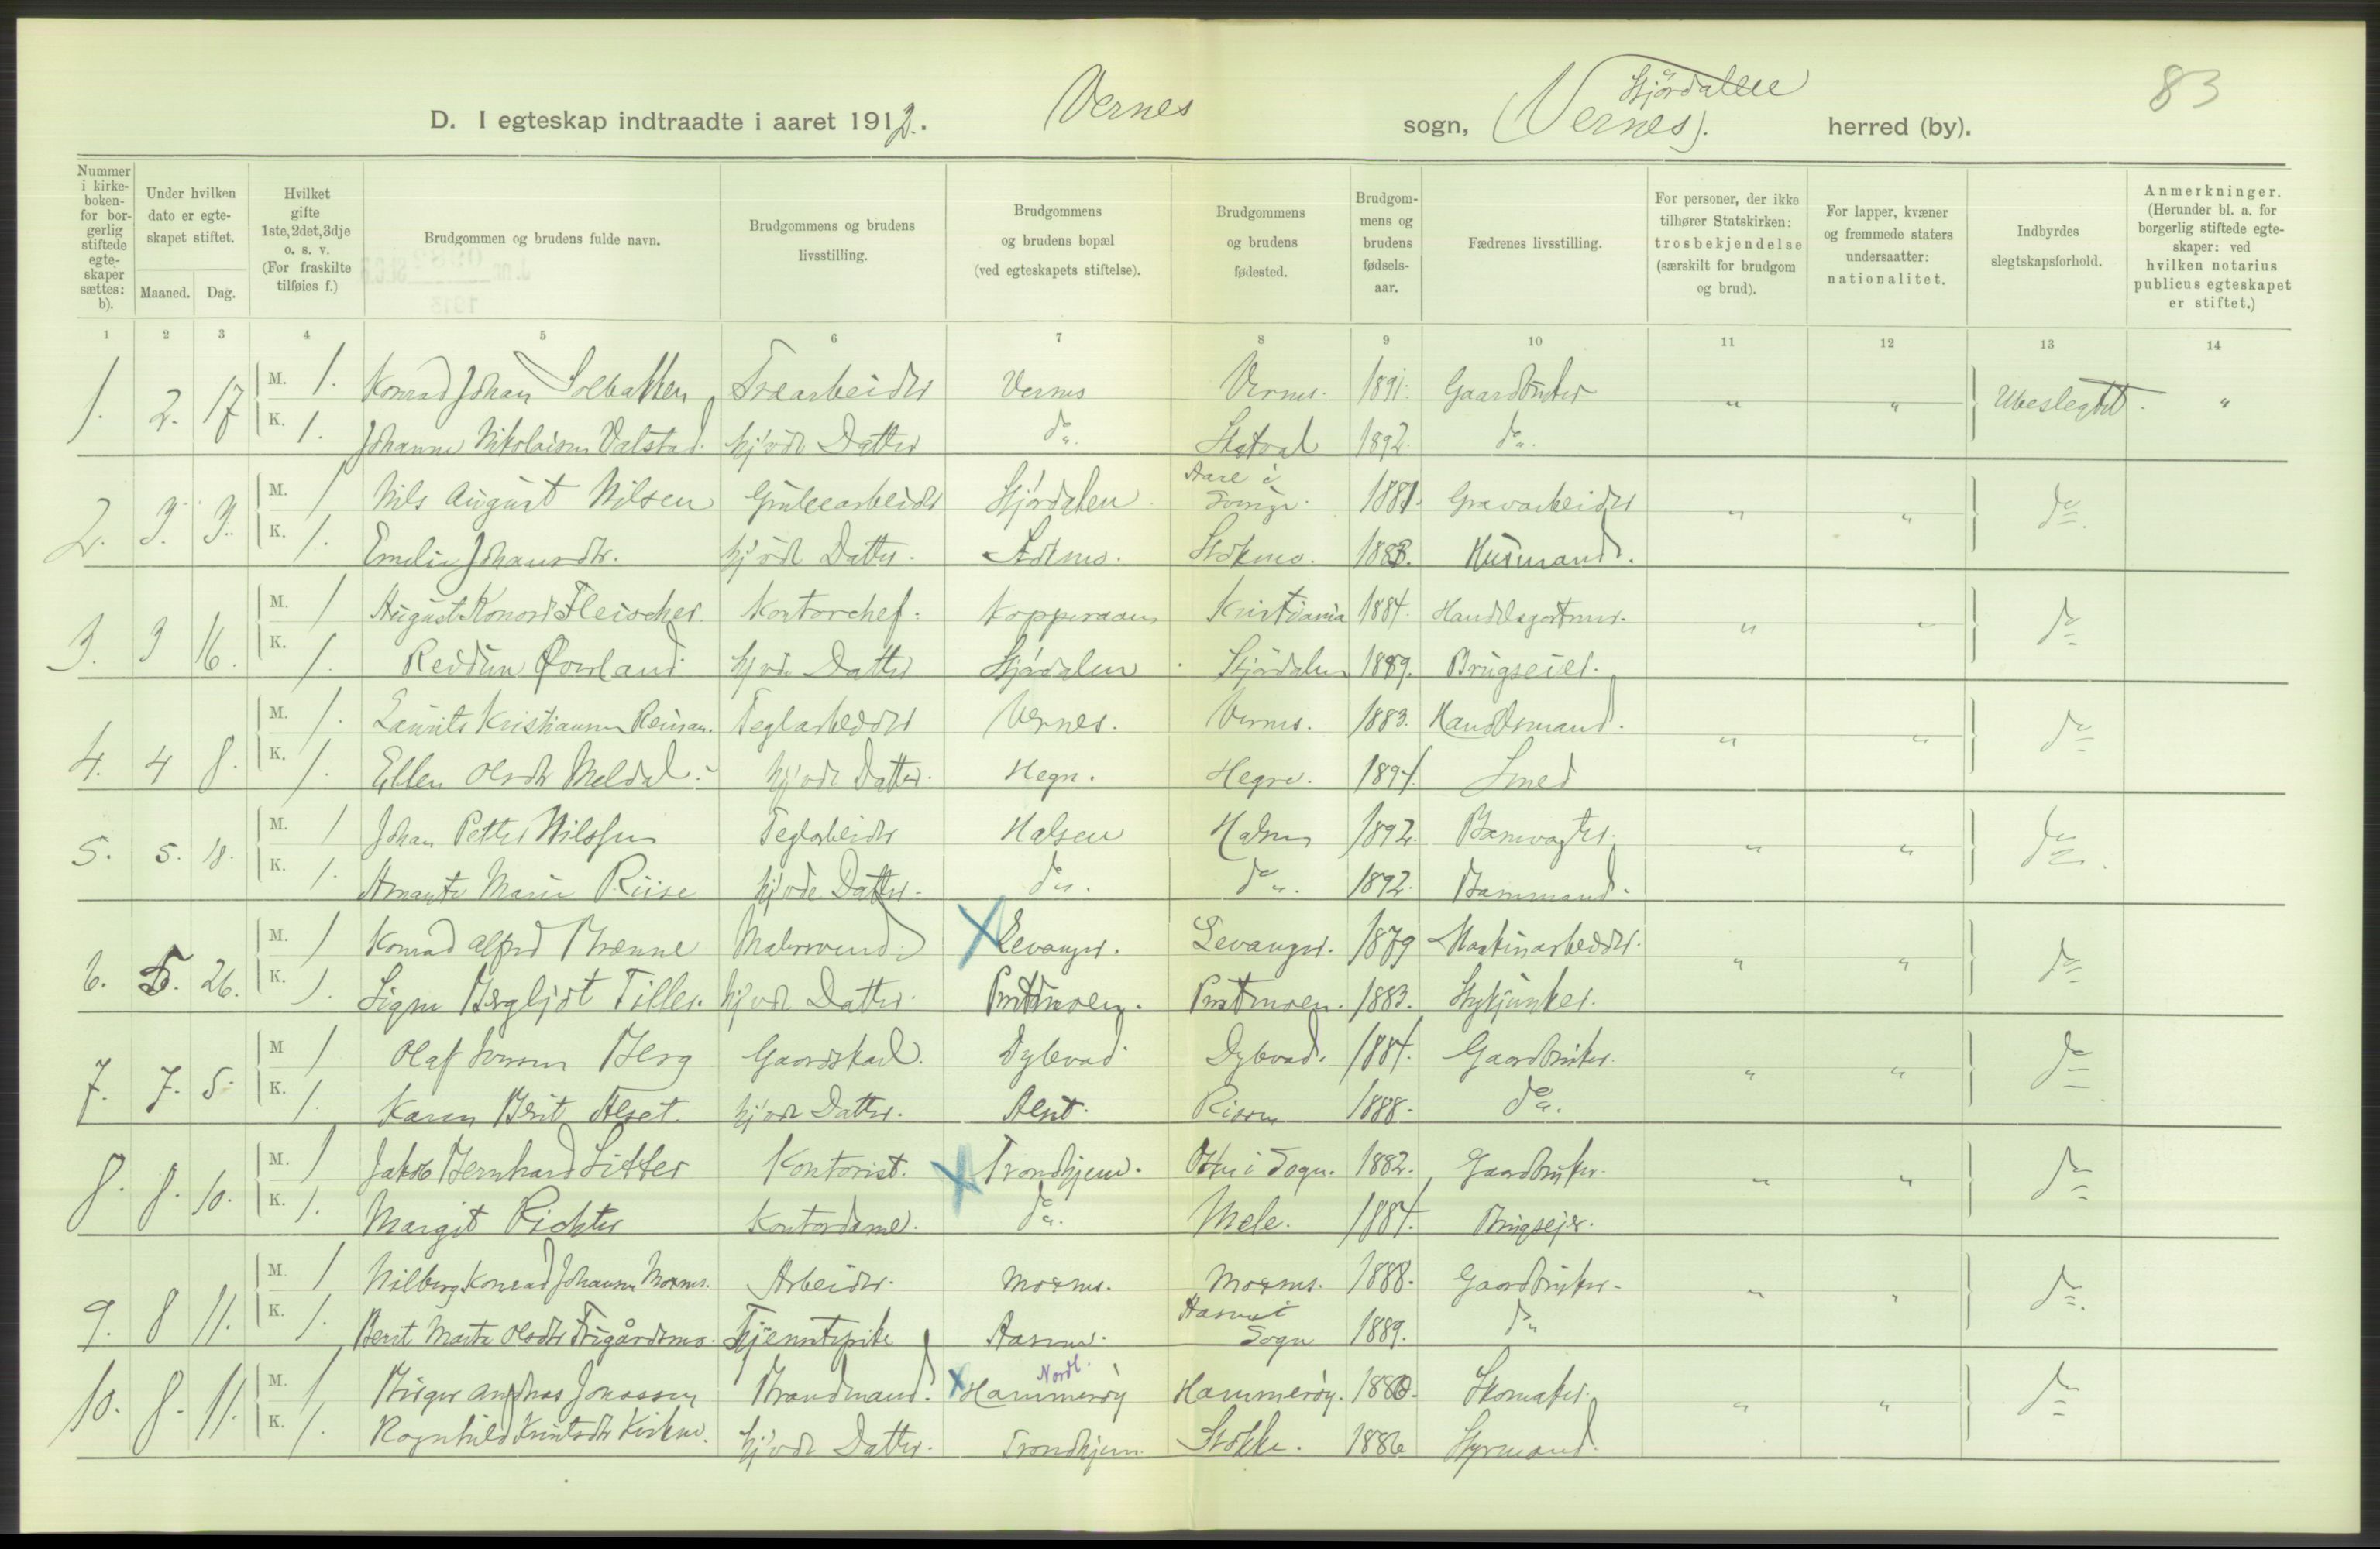 83
D. I egteskap indtraadte i aaret 1912. Vernes sogn, (Vernes). Stjørdalen herred (by).
Nummer i kirkeboken- for borgerlig stiftede egteskaper sættes: b).
Under hvilken dato er egteskapet stiftet.
Maaned. Dag.
Hvilket gifte 1ste, 2det, 3dje o. s. v. (For fraskilte tilføies f.)
Brudgommen og brudens fulde navn.
Brudgommens og brudens livsstilling.
Brudgommens og brudens bopæl (ved egteskapets stiftelse).
Brudgommens og brudens fødested.
Brudgommens og brudens fødsels-aar.
Fædrenes livsstilling.
For personer, der ikke tilhører Statskirken: trosbekjendelse (særskilt for brudgom og brud).
For lapper, kvæner og fremmede staters undersaatter: nationalitet.
Indbyrdes slegtskapsforhold.
Anmerkninger. (Herunder bl. a. for borgerlig stiftede egteskaper: ved hvilken notarius publicus egteskapet er stiftet.)
1 2 3 4 5 6 7 8 9 10 11 12 13 14
1. 2. 17 M. 1. Konrad Johan Solbakken Træarbeider Vernes Vernes. 1891. Gaardbruker " " Ubeslegtet. "
K. 1. Johanne Nikolaisen Valstad. hj. vde Datter do. Skatval 1892. do.
2. 3. 3. M. 1 Nils August Nilsen Grubearbeider Stjørdalen Aare i Sverige. 1881. Gravarbeider " " do
K. 1. Emelie Johansdtr. hj. vde Datter. Stokmo. 1883. Husmand.
3. 3 16. M. 1 August Konow Fleischer. Kontorchef. Kopperaaen Kristiania 1884. Handelsgartner. " " do
K. 1. Reidun Øverland hj vde Datter Stjørdalen Stjørdalen 1889. Brugseier.
4. 4 8. M. 1. Laurits Kristiansen Reinaas. Teglarbeider Vernes. Vernes. 1883. Handelsmand. " " do
K. 1. Ellen Olsdtr Meldal. hj vde Datter. Hegre. Hegre. 1894. Smed
5. 5. 18. M. 1 Johan Petter Nilssen Teglarbeider Halsen Halsen 1892. Banevogter. " " do
K. 1. Amanda Marie Riise hj vde Datter. do. do. 1892. Banemand.
6. 5. 26. M. 1 Konrad Alfred Brenne Malersvend Levanger. Levanger. 1879 Maskinarbeider. " " do
K. 1. Signe Bergljot Tiller. hj vde Datter. Prestmoen. Prestmoen. 1883. Skysjunker.
7. 7. 5. M 1 Olaf Iversen Berg Gaardskarl. Dybvad Dybvad. 1884. Gaardbruker. " " do
K. 1. Karen Berit Alset. hj vde Datter. Alset. Rissa 1888. do.
8. 8. 10. M. 1 Jakob Bernhard Sitter Kontorist. Trondhjem. i Sogn. 1882. Gaardbruker. " " do
K. 1. Margit Richter Kontordame. do. Mele. 1884. Brugseier.
9. 8 11. M. 1 Vilberg Konrad Johannes Moxnes. Arbeider. Moxnes. Moxnes. 1888. Gaardbruker. " " do
K. 1. Berit Marta Olsdtr Trøgårdsmo. Tjenestepike Aasen. Aasen i Sogn 1889. do
10. 8. 11. M. 1 Birger Andreas Jonassen Brandmand. Hammerøy Nordl. Hammerøy. 1880. Skomaker. " " do
K. 1. Ragnhild Knutsdtr Kirkne. hj vde Datter. Trondhjem Stokke. 1886 Styrmand.